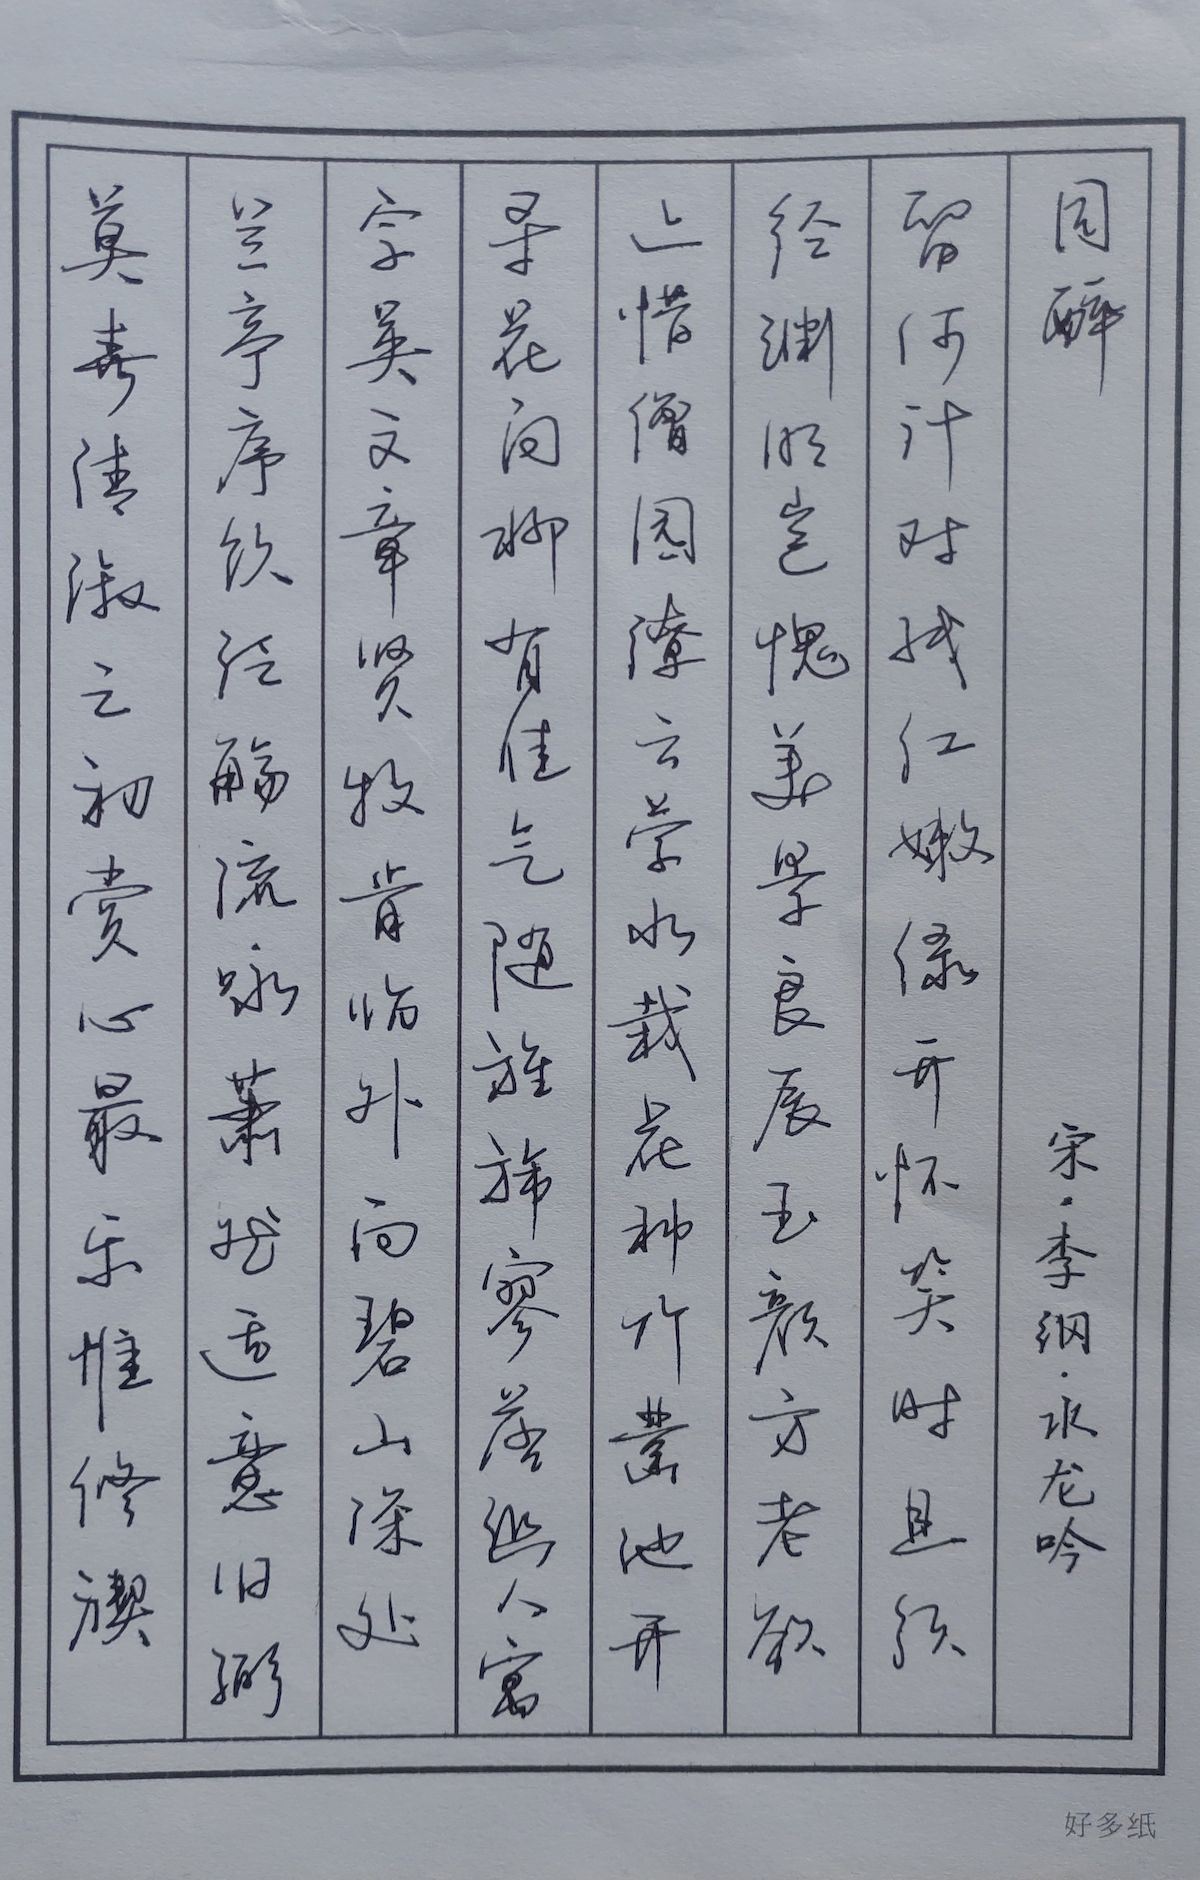 莫春清淑之初赏心最乐惟修禊
兰亭序饮泛觞流咏萧然适意旧弼
宗英文章贤牧肯临外向碧山深处
寻花问柳有佳气随旌旆寥落幽人寓
止惜僧园缭云萦水栽花种竹凿池开
径渊明岂愧美景良辰玉颜方老欲
留何计对残红嫩绿开怀笑时且须
同醉 宋·李纲·水龙吟
好多纸